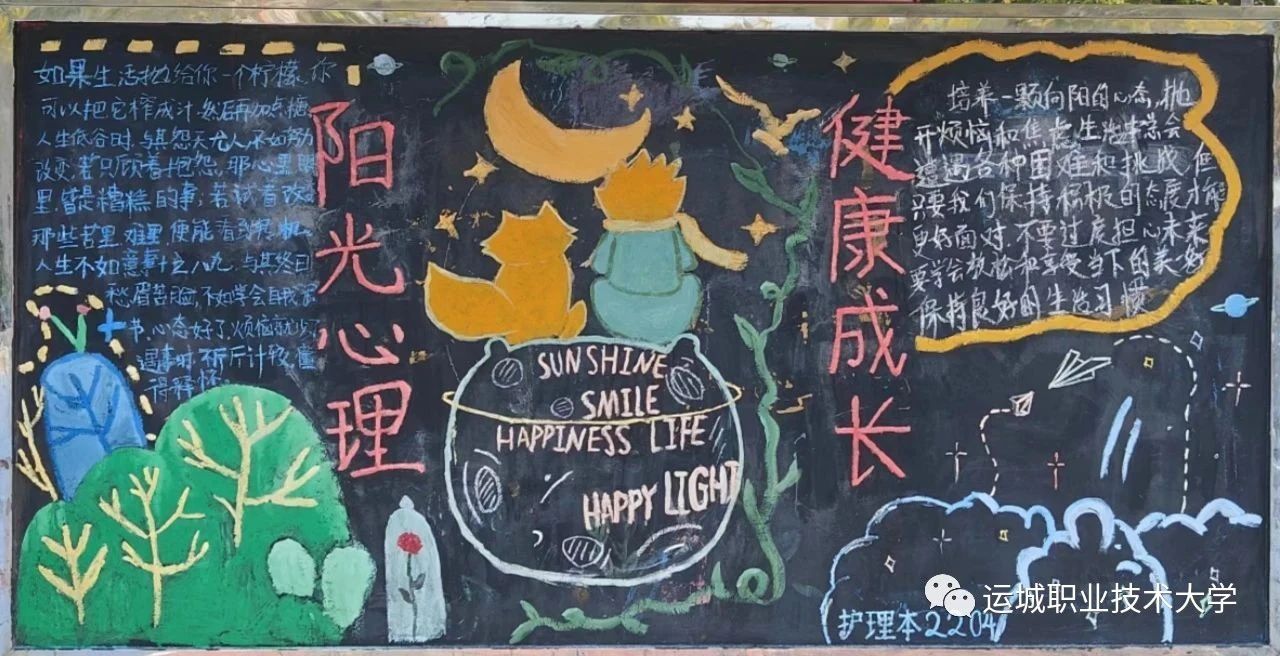 如果生活抛给你一个柠檬,你
可以把它榨成汁,然后再加点糖
人生低谷时,与其怨天尤人,不如努力
改变,若只顾着抱怨,那心里眼
里,皆是糟糕的事,若试着改
那些苦里、难里,便能看到转机
人生不如意事十之八九,与其终日
愁眉苦脸,不如学会自我
书,心态好了,烦恼就少了
遇事时,不斤斤计较,懂
得释怀
阳光心理
SUNSHINE
SMILE
HAPPINESS LIFE
HAPPY LIGHT
健康成长
培养一颗向阳的心态,抛
开烦恼和焦虑,生活中总会
遭遇各种困难和挑战,但
只要我们保持积极的态度,才能
更好面对,不要过度担心未来
要学会放松和享受当下的美好
保持良好的生活习惯
护理本2204
运城职业技术大学